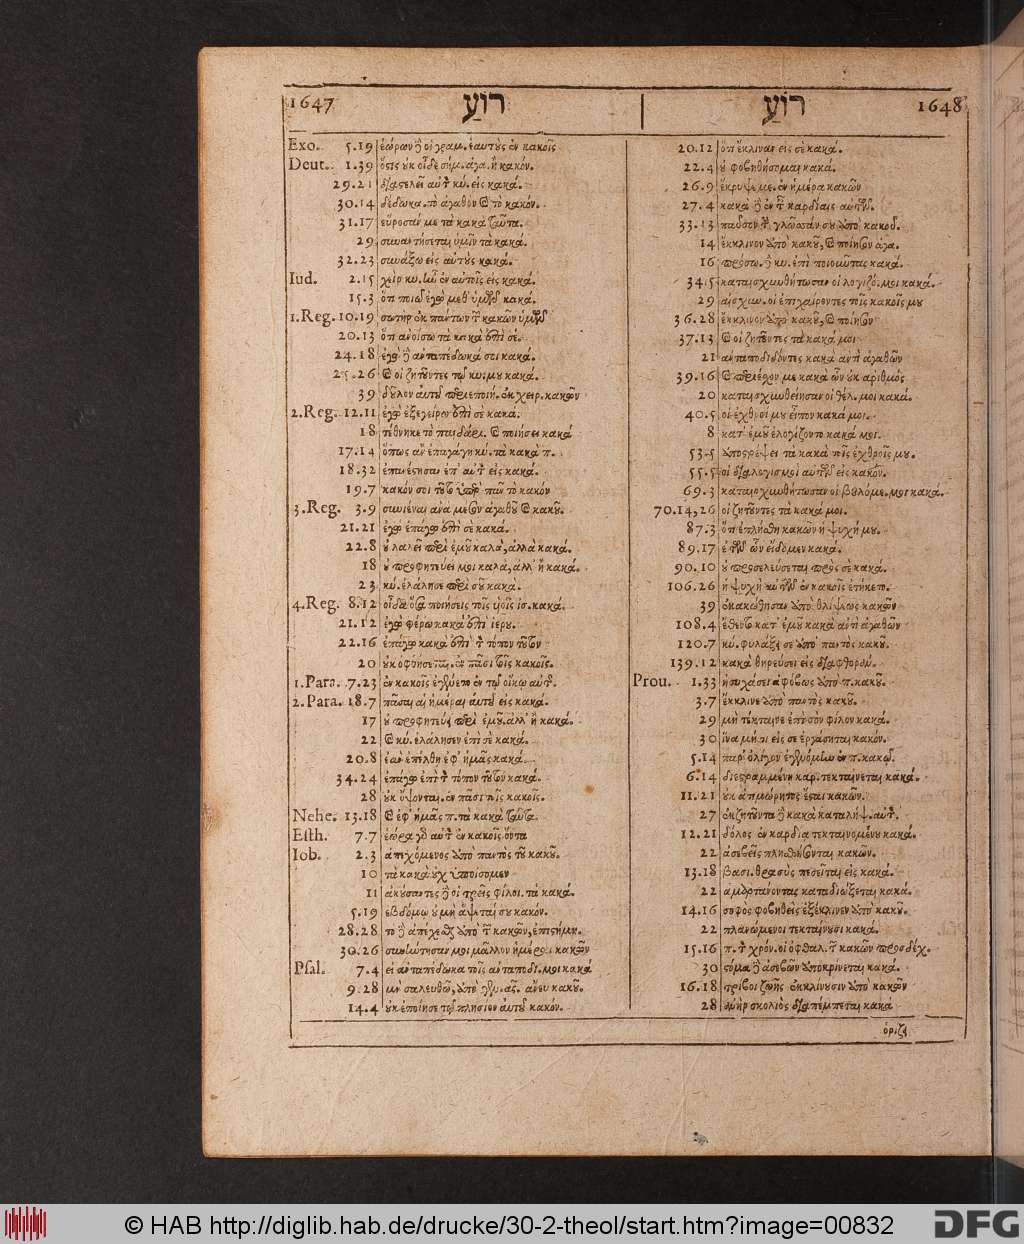 1647 רוֹעַ רוֹעַ 1648
Exo. 5.19 ἑώρων ἢ οἱ γραμ. ἑαυτοὺς ἐν κακοῖς
Deut. 1.39 ὅστις οὐκ οἶδε σήμ. ἀγα. ἢ κακόν.
29.21 κύ. εἰς κακά.
30.14 δέδωκα. τὸ ἀγαθὸν καὶ τὸ κακόν.
31.17 εὕροσάν με τὰ κακὰ ταῦτα.
29 συναντήσεται ὑμῖν τὰ κακά.
32.23 συνάξω εἰς αὐτοὺς κακά.
Iud. 2.15 χεὶρ κυ. ἦν ἐν αὐτοῖς εἰς κακά.
15.3 ὅτι ποιῶ ἐγὼ μεθ' ὑμῶν κακά.
1.Reg. 10.19 σωτὴρ ἐκ πάντων τῶν κακῶν ὑμῶν
20.13 ὅτι ἀνοίσω τὰ κακὰ ἐπὶ σέ.
24.18 ἐγὼ δὲ ἀνταπέδωκά σοι κακά.
25.26 καὶ οἱ ζητοῦντες τῷ κυ. μου κακά.
39 δοῦλον αὐτοῦ περιεποιή. ἐκ χειρ. κακῶν
2.Reg. 12.11 ἐγὼ ἐξεγείρω ἐπὶ σὲ κακά.
18 τέθνηκε τὸ παιδάρι. καὶ ποιήσει κακά
17.14 ὅπως ἂν ἐπαγάγῃ κύ. τὰ κακὰ π.
18.32 ἐπανέστησαν ἐπ' αὐτὸν εἰς κακά.
19.7 κακόν σοι τοῦτο ὑπὲρ πᾶν τὸ κακόν
3.Reg. 3.9 συνιέναι ἀνὰ μέσον ἀγαθοῦ καὶ κακοῦ.
21.21 ἐγὼ ἐπάγω ἐπὶ σὲ κακά.
22.8 οὐ λαλεῖ περὶ ἐμοῦ καλὰ, ἀλλὰ κακά.
18 οὐ προφητεύει μοι καλὰ, ἀλλ' ἢ κακά.
23 κύ. ἐλάλησε περὶ σοῦ κακά.
4.Reg. 8.12 οἶδα ὅσα ποιήσεις τοῖς υἱοῖς ἰσ. κακά.
21.12 ἐγὼ φέρω κακὰ ἐπὶ ἱερου.
22.16 ἐπάγω κακὰ ἐπὶ τὸν τόπον τοῦτον
20 οὐκ ὀφθήσεται. ἐν πᾶσι τοῖς κακοῖς.
1.Para. 7.23 ἐν κακοῖς ἐγένετο ἐν τῷ οἴκῳ αὐτοῦ.
2.Para. 18.7 πᾶσαι αἱ ἡμέραι αὐτοῦ εἰς κακά.
17 οὐ προφητεύει περὶ ἐμοῦ. ἀλλ' ἢ κακά.
22 καὶ κύ. ἐλάλησεν ἐπὶ σὲ κακά.
20.8 ἐὰν ἐπέλθῃ ἐφ' ἡμᾶς κακά.
34.24 ἐπάγω ἐπὶ τὸν τόπον τοῦτον κακά.
28 οὐκ ὄψονται. ἐν πᾶσι τοῖς κακοῖς.
Nehe. 13.18 καὶ ἐφ' ἡμᾶς π. τὰ κακὰ ταῦτα
Esth. 7.7 ἑώρα γὰρ αὐτὸν ἐν κακοῖς ὄντα
Iob. 2.3 ἀπεχόμενος ἀπὸ παντὸς τοῦ κακοῦ.
10 τὰ κακὰ οὐχ ὑποίσομεν
11 ἀκούσαντες δὲ οἱ τρεῖς φίλοι. τὰ κακά.
5.19 ἑβδόμῳ οὐ μὴ ἅψηταί σου κακόν.
28.28 τὸ δὲ ἀπέχεσθαι ἀπὸ τῶν κακῶν, ἐπιστήμη.
30.26 συνήντησάν μοι μᾶλλον ἡμέραι κακῶν
Psal. 7.4 εἰ ἀνταπέδωκα τοῖς ἀνταποδι. μοι κακά
9.28 μὴ σαλευθῶ, ἀπὸ γενεᾶς. ἄνευ κακοῦ.
14.4 οὐκ ἐποίησε τῷ πλησίον αὐτοῦ κακόν.
20.12 ὅτι ἔκλιναν εἰς σὲ κακά.
22.4 οὐ φοβηθήσομαι κακά.
26.9 ἔκρυψέ με. ἐν ἡμέρᾳ κακῶν
27.4 κακὰ δὲ ἐν τ. καρδίαις αὐτῶν.
33.13 παῦσον τὴν γλῶσσάν σου ἀπὸ κακοῦ.
14 ἔκκλινον ἀπὸ κακοῦ, καὶ ποίησον ἀγα.
16 πρόσω. δὲ κυ. ἐπὶ ποιοῦντας κακά.
34.5 καταισχυνθήτωσαν οἱ λογιζό. μοι κακά.
29 αἰσχυν. οἱ ἐπιχαίροντες τοῖς κακοῖς μου
36.28 ἔκκλινον ἀπὸ κακοῦ, καὶ ποίησον
37.13 καὶ οἱ ζητοῦντες τὰ κακά μοι
21 ἀνταποδιδόντες κακὰ ἀντὶ ἀγαθῶν
39.16 καὶ περιέσχον με κακὰ ὧν οὐκ ἀριθμός
20 καταισχυνθείησαν οἱ θέλ. μοι κακά.
40.5 οἱ ἐχθροί μου εἶπον κακά μοι.
8 κατ' ἐμοῦ ἐλογίζοντο κακά μοι.
53.5 ἀποστρέψει τὰ κακὰ τοῖς ἐχθροῖς μου.
55.5 οἱ διαλογισμοὶ αὐτῶν εἰς κακόν.
69.3 καταισχυνθήτωσαν οἱ βουλόμε. μοι κακά.
70.14,26 οἱ ζητοῦντες τὰ κακά μοι.
87.3 ὅτι ἐπλήσθη κακῶν ἡ ψυχή μου.
89.17 ἐτῶν ὧν εἴδομεν κακά.
90.10 οὐ προσελεύσεται πρὸς σὲ κακά.
106.26 ἡ ψυχὴ αὐτῶν ἐν κακοῖς ἐτήκετο.
39 ἐκακώθησαν ἀπὸ θλίψεως κακῶν
108.4 ἔθεντο κατ' ἐμοῦ κακὰ ἀντὶ ἀγαθῶν
120.7 κύ. φυλάξει σε ἀπὸ παντὸς κακοῦ.
139.12 κακὰ θηρεύσει εἰς διαφθοράν.
Prou. 1.33 ἡσυχάσει ἀφόβως ἀπὸ π. κακοῦ.
3.7 ἔκκλινε ἀπὸ παντὸς κακοῦ.
29 μὴ τεκταίνε ἐπὶ σὸν φίλον κακά.
30 ἵνα μή τι εἰς σε ἐργάσηται κακόν.
5.14 παρ' ὀλίγον ἐγενόμην ἐν π. κακῷ.
6.14 διεστραμμένη καρ. τεκταίνεται κακά.
11.21 οὐκ ἀτιμώρητος ἔσται κακῶν.
27 ἐκζητοῦντα δὲ κακὰ καταλήψ. αὐτ.
12.21 δόλος ἐν καρδίᾳ τεκταινομένου κακά.
22 ἀσεβεῖς πλησθήσονται κακῶν.
13.18 βασι. θρασὺς πεσεῖται εἰς κακά.
22 ἁμαρτάνοντας καταδιώξεται κακά.
14.16 σοφὸς φοβηθεὶς ἐξέκλινεν ἀπὸ κακοῦ.
22 πλανώμενοι τεκταίνουσι κακά.
15.16 π. τ. χρόν. οἱ ὀφθαλ. τῶν κακῶν προσδέχ.
30 στόμα δὲ ἀσεβῶν ἀποκρίνεται κακά.
16.18 τρίβοι ζωῆς ἐκκλίνουσιν ἀπὸ κακῶν
28 ἀνὴρ σκολιὸς διαπέμπεται κακά
ὁρίζει
© HAB http://diglib.hab.de/drucke/30-2-theol/start.htm?image=00832
DFG